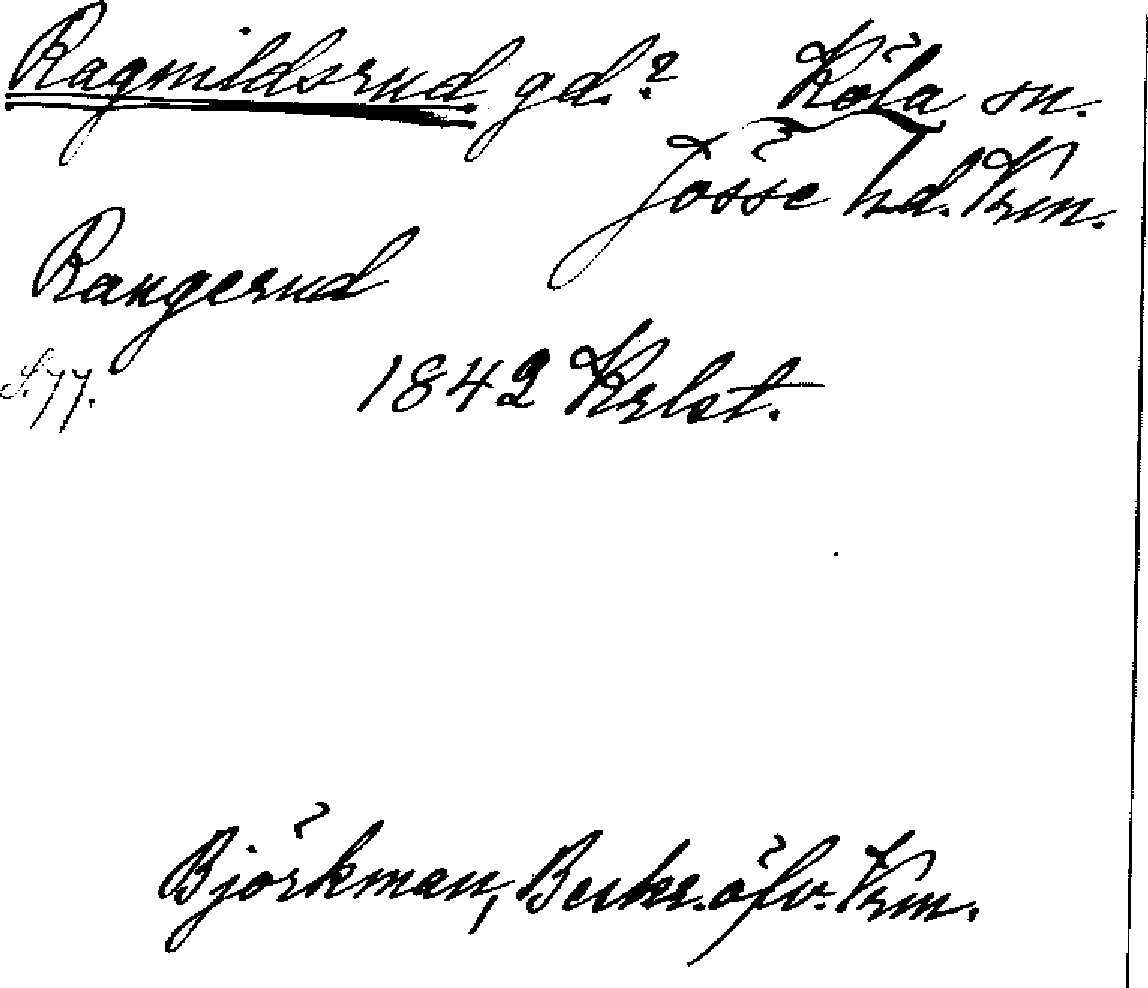 Ragnildsrud gd.? Köla sn.
Jösse hd. Vrm.
Rangerud
S. 77.
1842 Krlst.
Björkman, Beskr. öfv. Vrm.